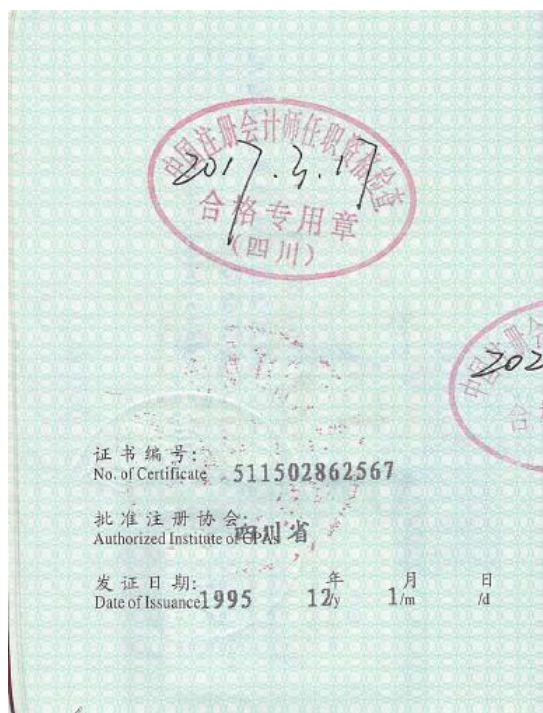 中国注册会计师任职资格检查
2017.3.17
合格专用章
(四川)
中国注册会
202
合
证书编号:
No. of Certificate 511502862567
批准注册协会:
Authorized Institute of CPAs 四川省
发证日期: 年 月 日
Date of Issuance 1995 12/y 1/m /d